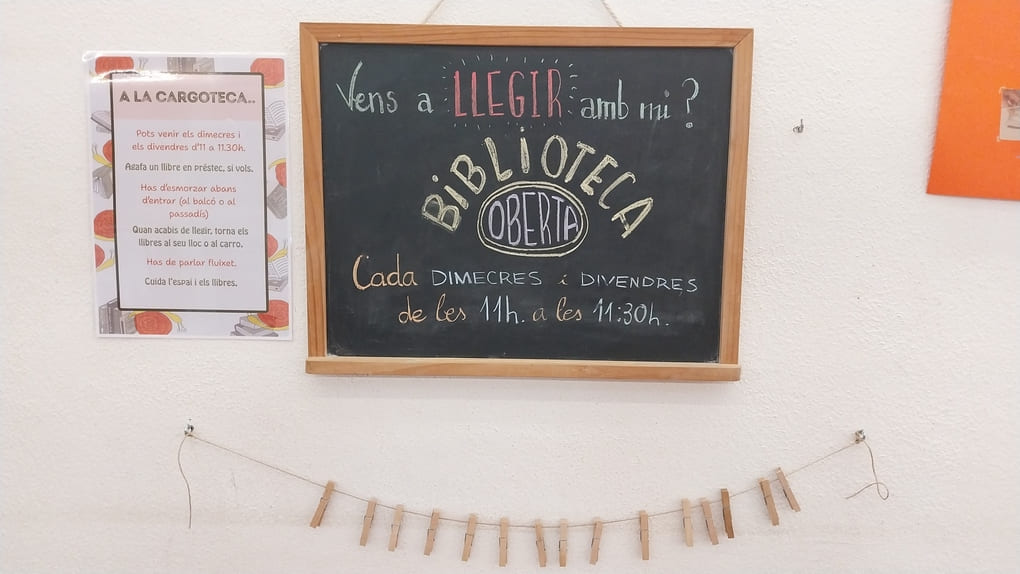 A LA CARGOTECA..
Pots venir els dimecres i
els divendres d'11 a 11.30h.
Agafa un llibre en préstec, si vols.
Has d'esmorzar abans
d'entrar (al balcó o al
passadís)
Quan acabis de llegir, torna els
llibres al seu lloc o al carro.
Has de parlar fluixet.
Cuida l'espai i els llibres.
Vens a LLEGIR amb mi?
BIBLIOTECA
OBERTA
Cada DIMECRES i DIVENDRES
de les 11h. a les 11:30h.